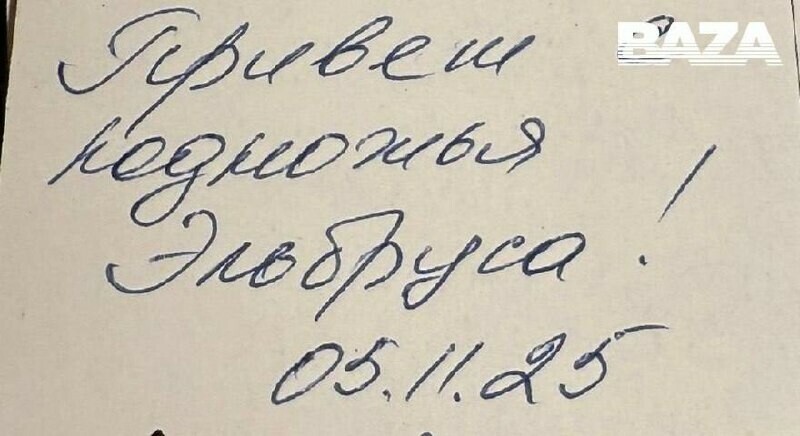 Привет с
BAZA
подножья
Эльбруса!
05.11.25